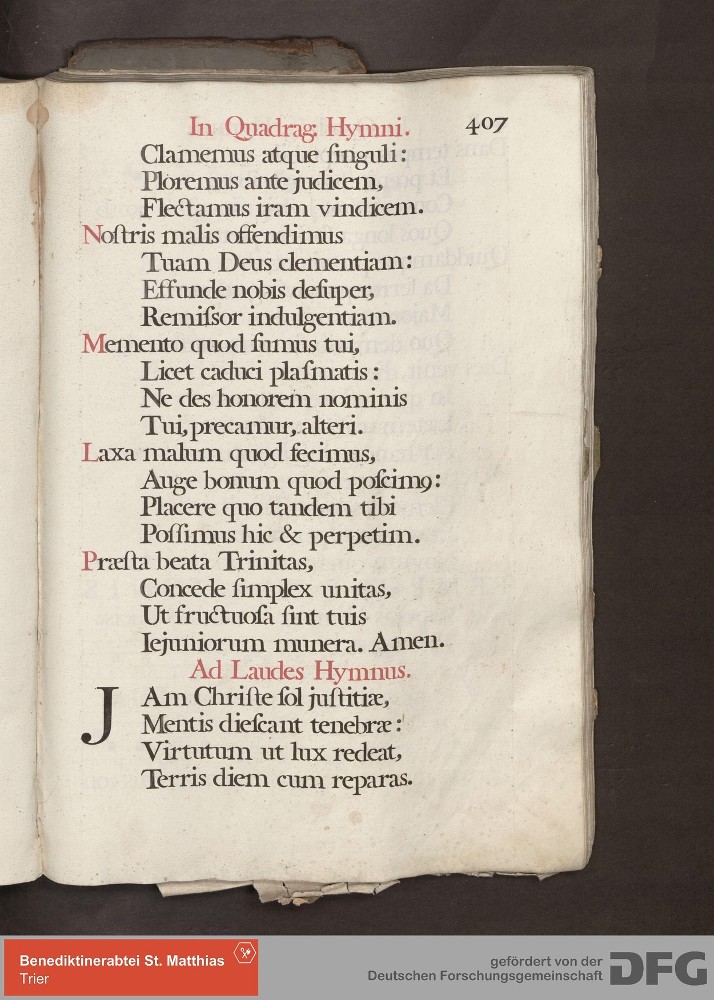 In Quadrag: Hymni. 407
Clamemus atque ſinguli:
Ploremus ante judicem,
Flectamus iram vindicem.
Noſtris malis offendimus
Tuam Deus clementiam:
Effunde nobis deſuper,
Remiſsor indulgentiam.
Memento quod ſumus tui,
Licet caduci plaſmatis:
Ne des honorem nominis
Tui, precamur, alteri.
Laxa malum quod fecimus,
Auge bonum quod poſcimꝰ:
Placere quo tandem tibi
Poſſimus hic & perpetim.
Præſta beata Trinitas,
Concede ſimplex unitas,
Ut fructuoſa ſint tuis
Iejuniorum munera. Amen.
Ad Laudes Hymnus.
JAm Chriſte ſol juſtitiæ,
Mentis dieſcant tenebræ:
Virtutum ut lux redeat,
Terris diem cum reparas.
Benediktinerabtei St. Matthias
Trier
gefördert von der
Deutschen Forschungsgemeinschaft DFG